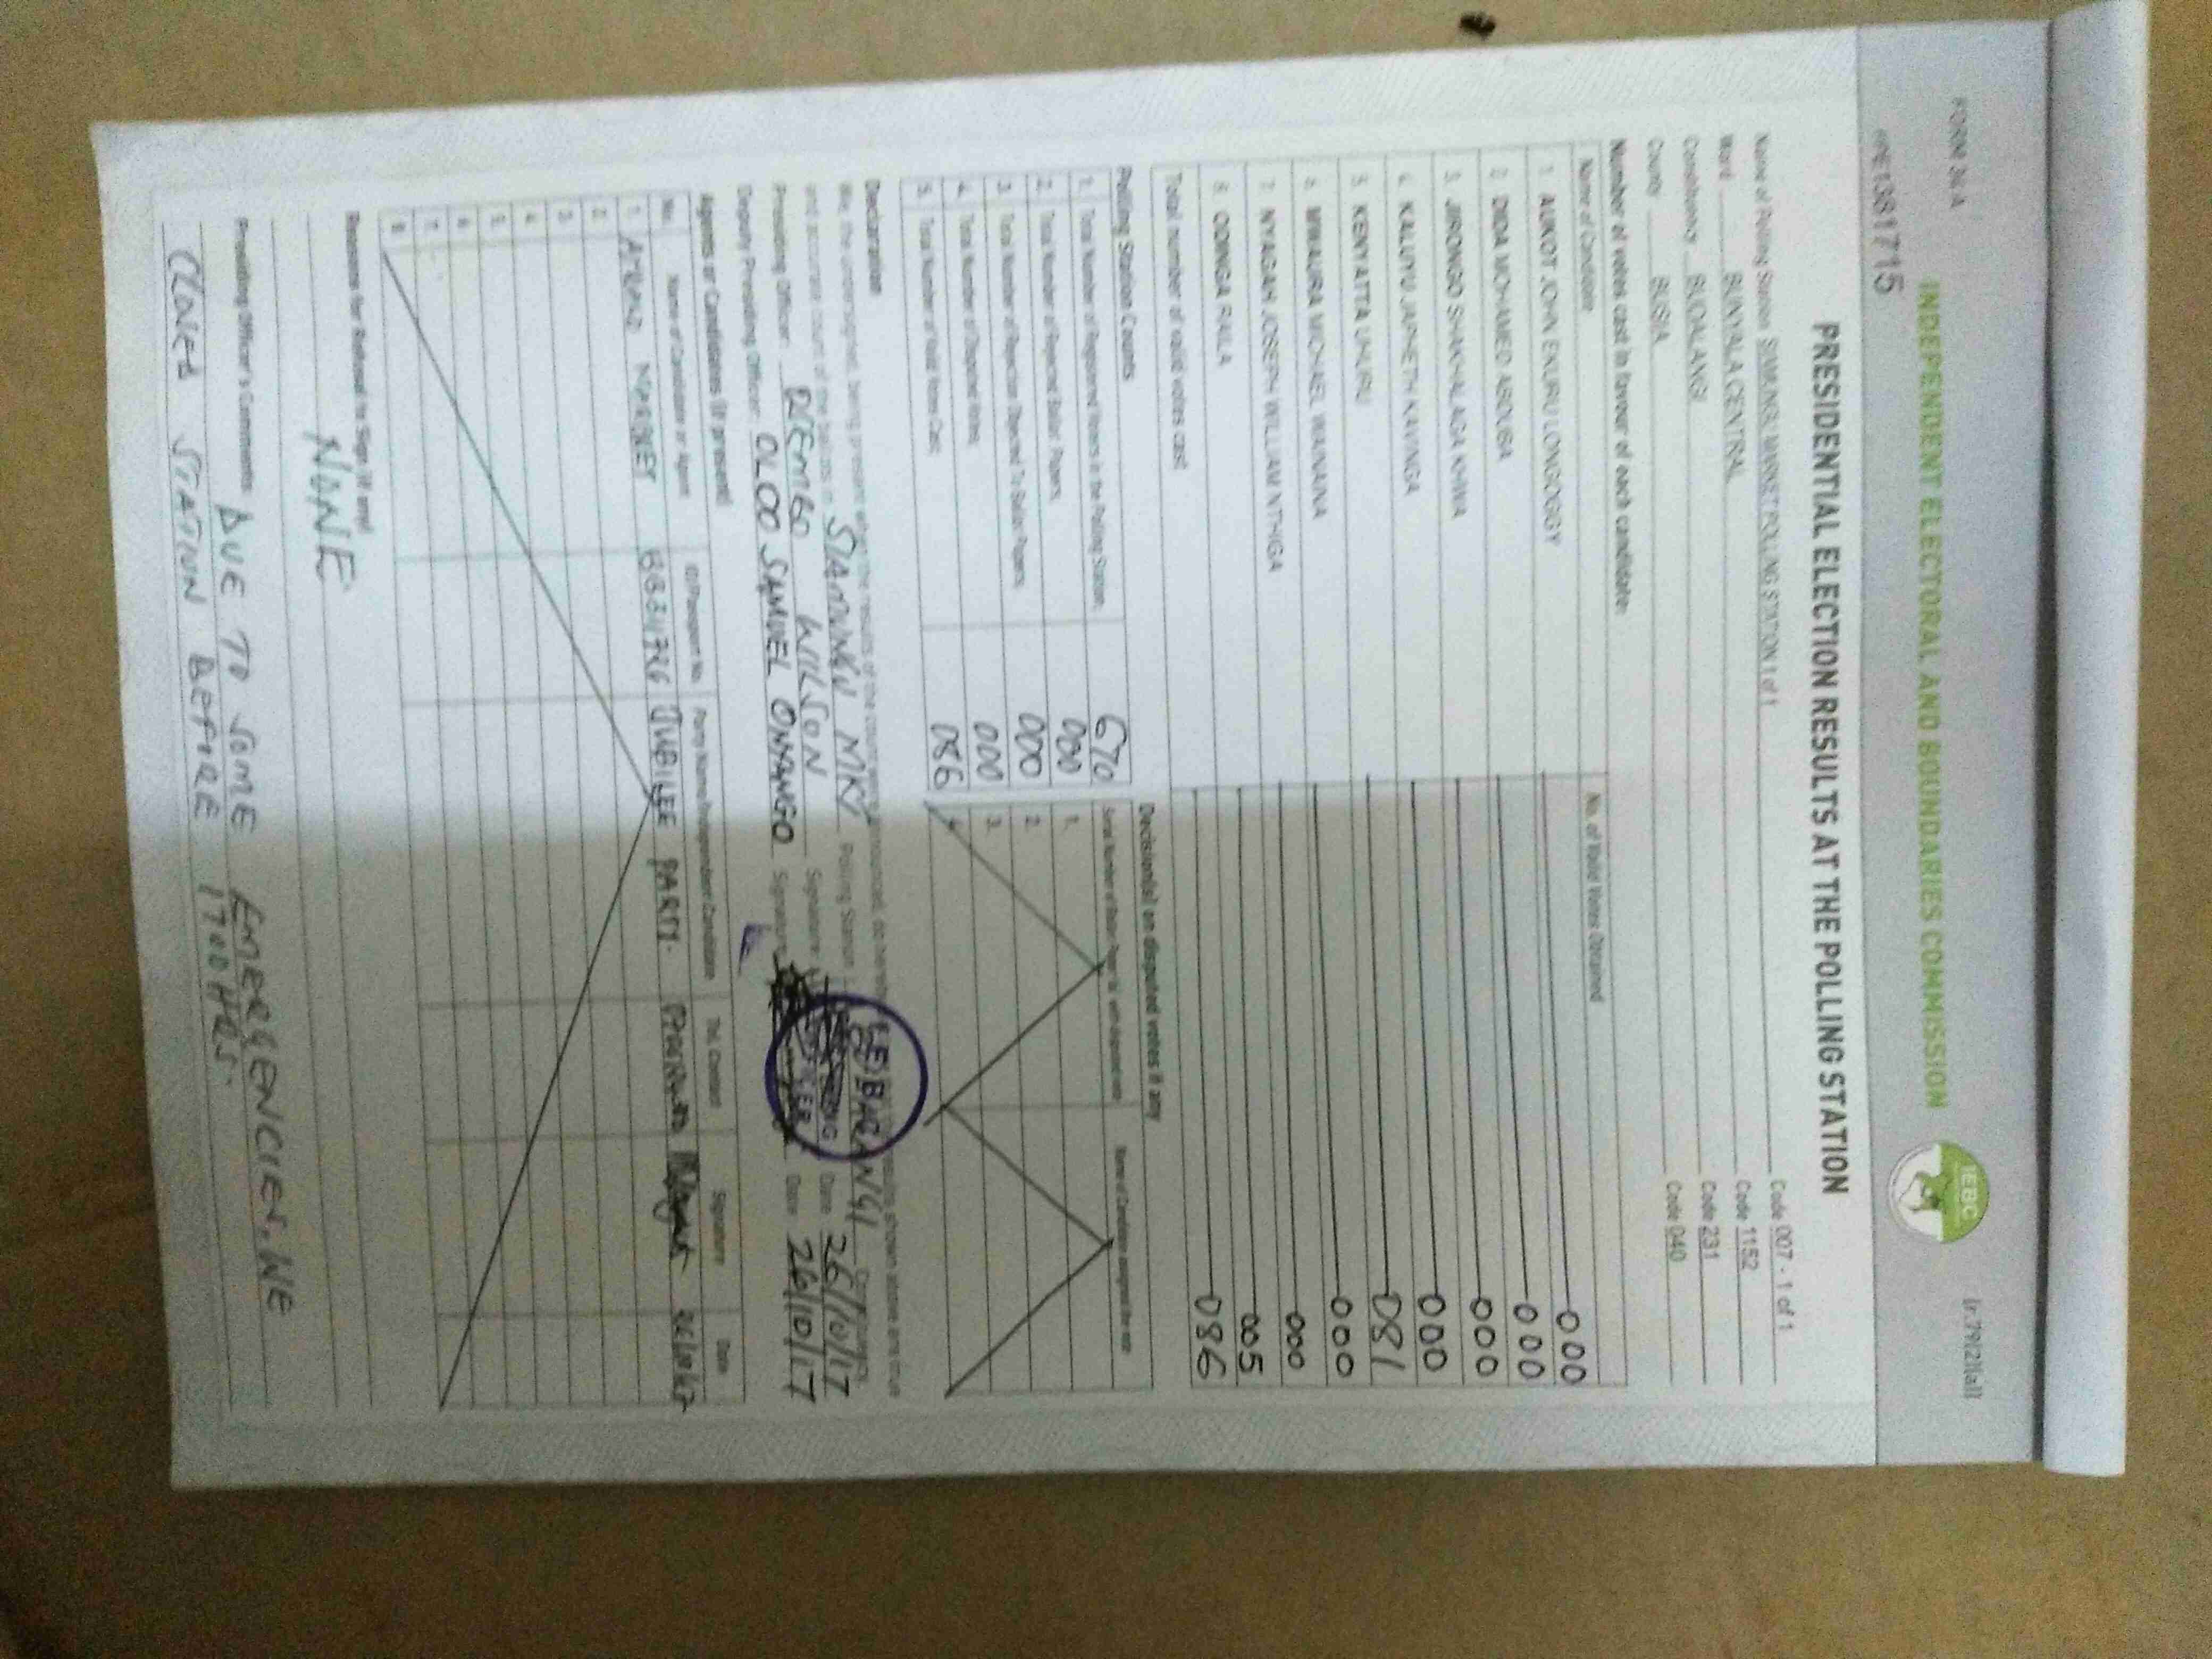 FORM 34A
(r.79(2)(a))
INDEPENDENT ELECTORAL AND BOUNDARIES COMMISSION
IEBC
PRE1381715
PRESIDENTIAL ELECTION RESULTS AT THE POLLING STATION
Name of Polling Station SIAMUNGU MARKET POLLING STATION 1 of 1 Code 007 - 1 of 1
Ward BUNYALA CENTRAL Code 1152
Constituency BUDALANGI Code 231
County BUSIA Code 040
Number of votes cast in favour of each candidate:
Name of Candidate No. of Valid Votes Obtained
1. AUKOT JOHN EKURU LONGOGGY 000
2. DIDA MOHAMED ABDUBA 000
3. JIRONGO SHAKHALAGA KHWA 000
4. KALUYU JAPHETH KAVINGA 000
5. KENYATTA UHURU 081
6. MWAURA MICHAEL WAINAINA 000
7. NYAGAH JOSEPH WILLIAM NTHIGA 000
8. ODINGA RAILA 005
Total number of valid votes cast 086
Polling Station Counts
1. Total Number of Registered Voters in the Polling Station 670
2. Total Number of Rejected Ballot Papers 000
3. Total Number of Rejection Objected To Ballot Papers 000
4. Total Number of Disputed Votes 000
5. Total Number of Valid Votes Cast 086
Decision(s) on disputed votes if any
Serial Number of Ballot Paper(s) with disputed vote Name of Candidate assigned the vote
1.
2.
3.
4.
Declaration
We, the undersigned, being present when the results of the count were announced, do hereby shown above are true
and accurate count of the ballots in SIAMUNGU MKT Polling Station Constituency
Presiding Officer: WILSON Signature Date 26/10/17
Deputy Presiding Officer: OLOO SAMUEL ONYANGO Signature Date 26/10/17
Agents or Candidates (if present)
No. Name of Candidate or Agent ID/Passport No. Party Name/Independent Candidate Tel. Contact Signature Date
1. JUBILEE PARTY. 26/10/17
2.
3.
4.
5.
6.
7.
8.
Reasons for Refusal to Sign (if any)
NONE
Presiding Officer's Comments: DUE TO SOME EMERGENCIES, WE
CLOSED STATION BEFORE 1700HRS.